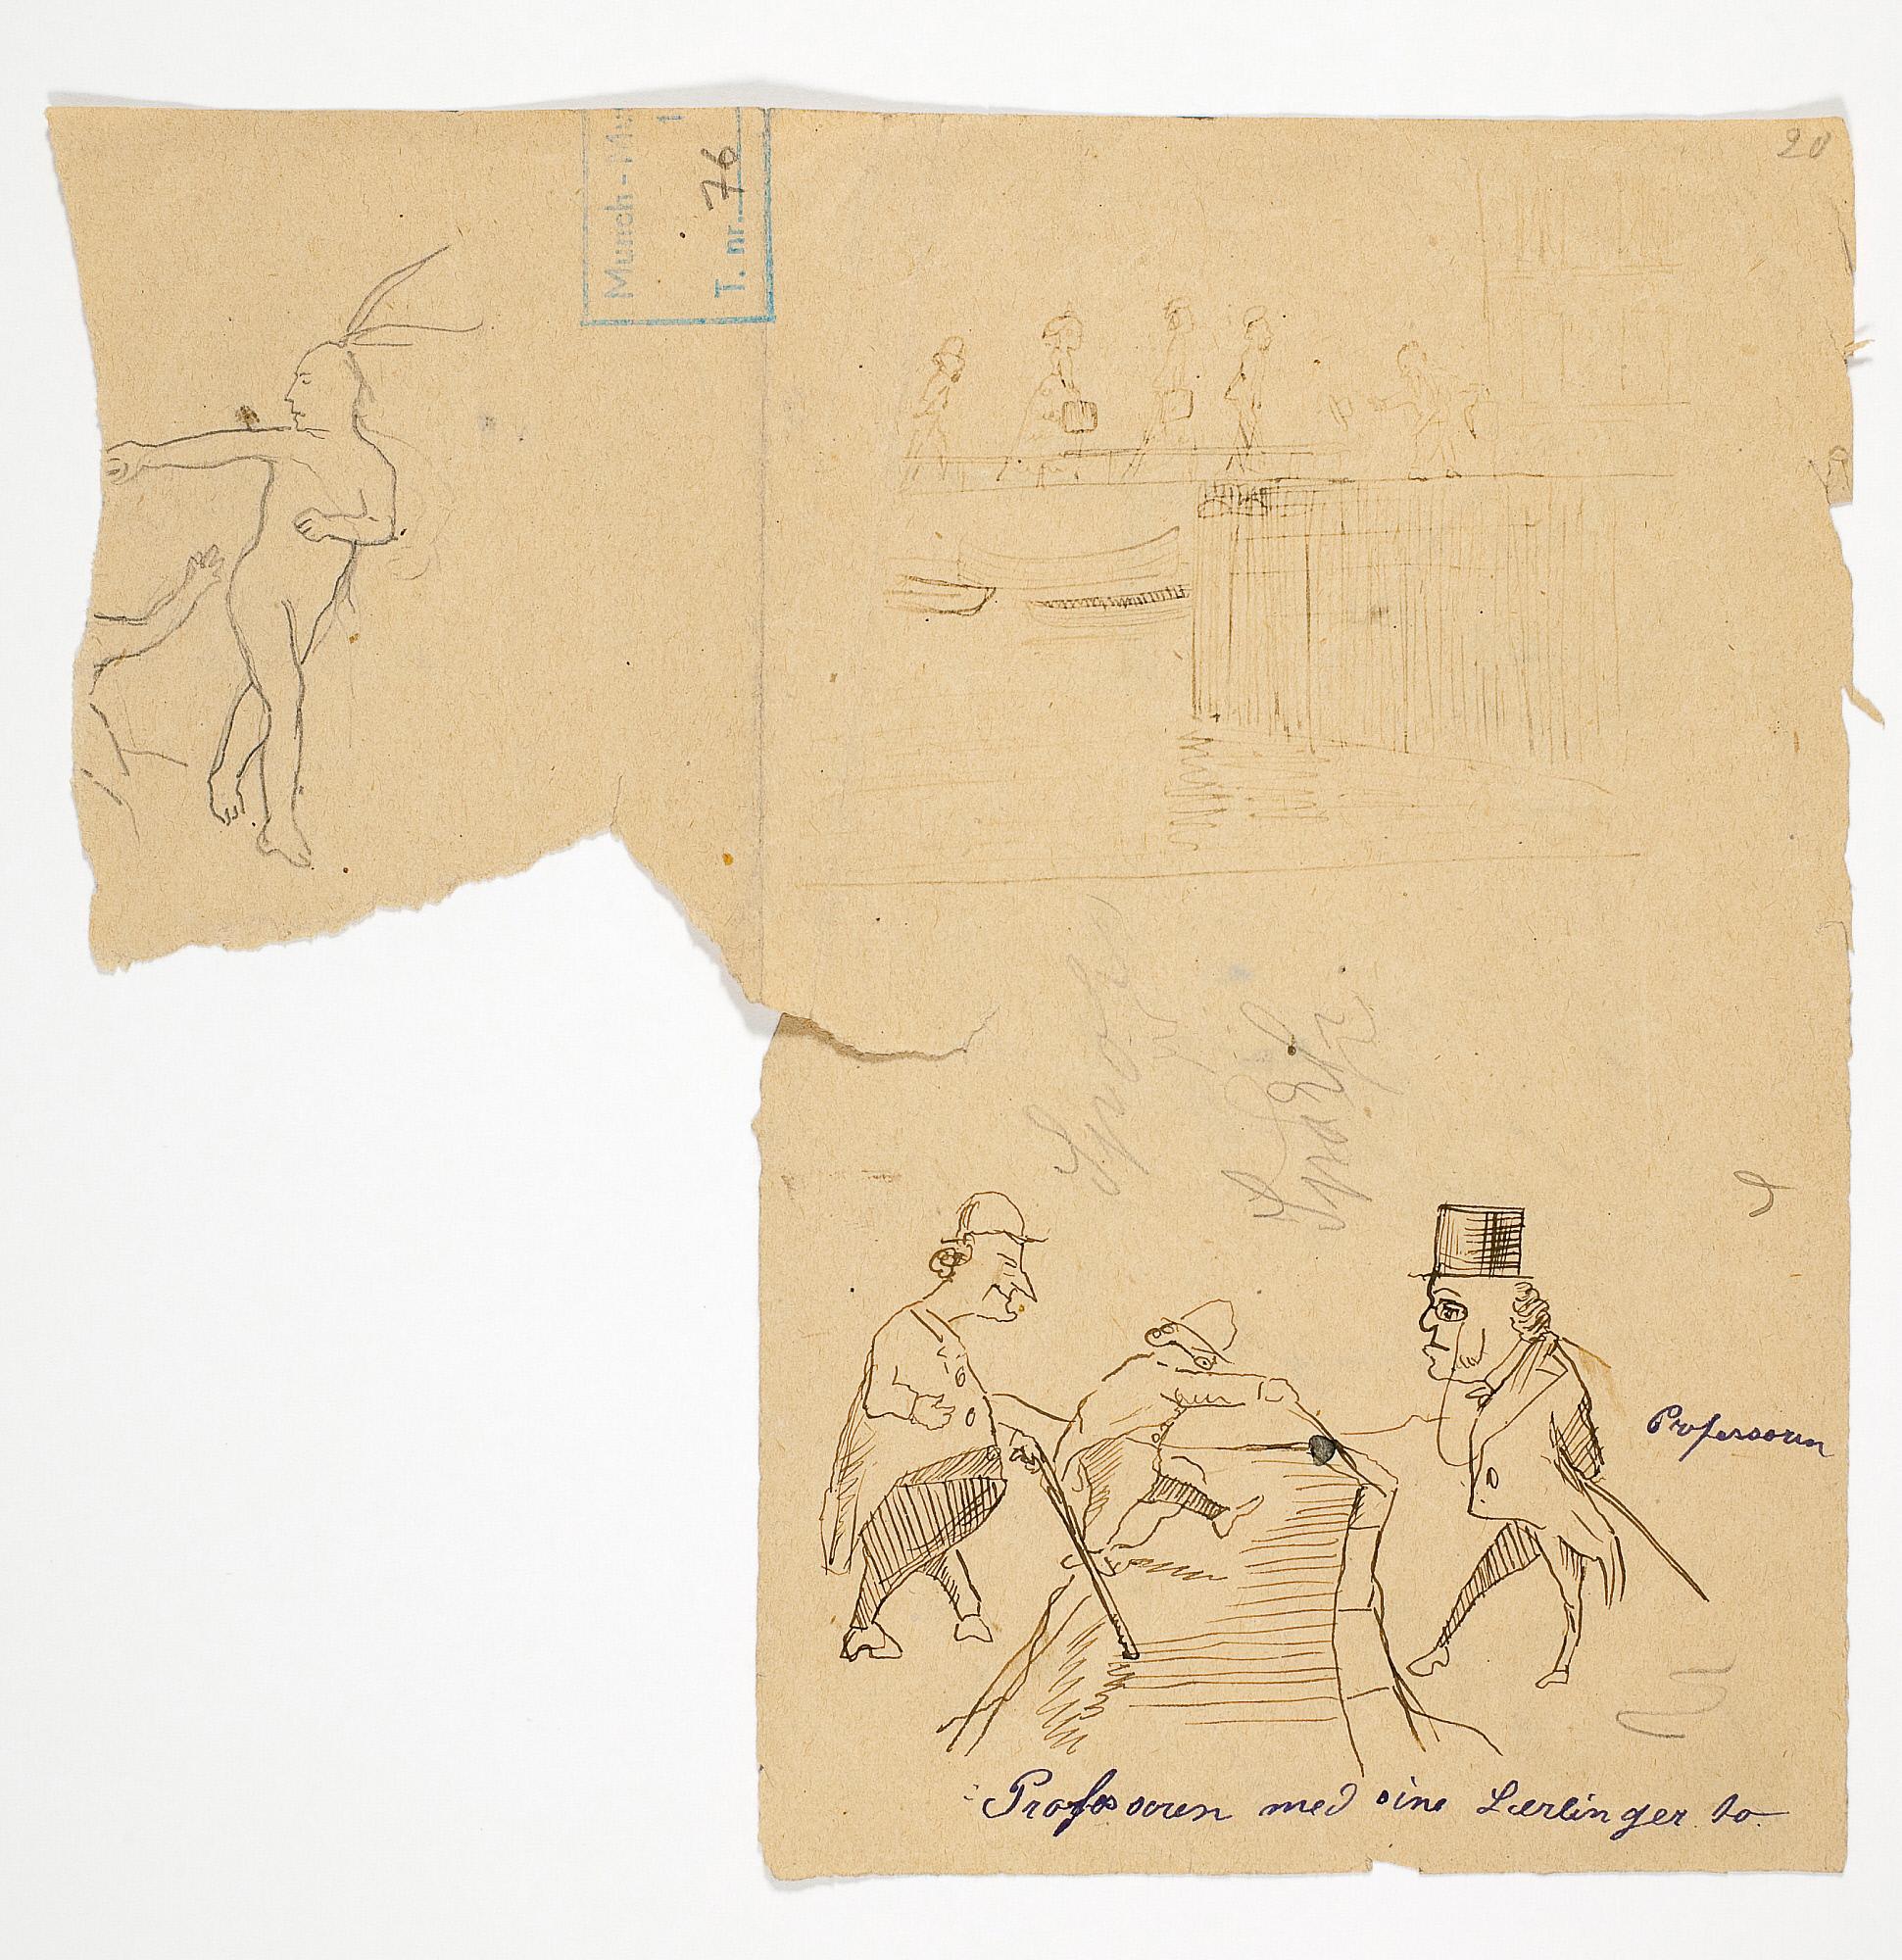 Munch - Mu
T. nr. 76
20
Professoren
Professoren med sine Lærlinger to